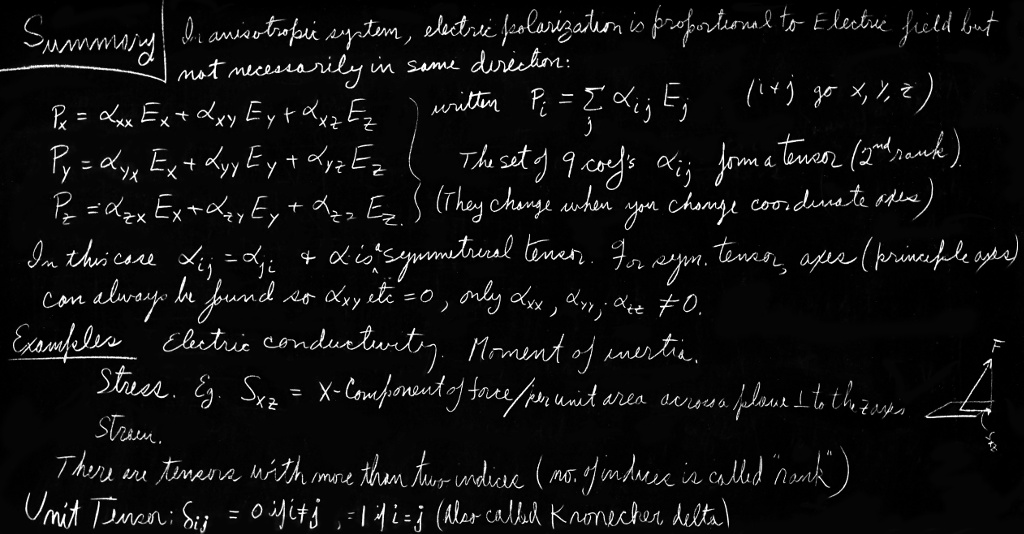 Summary In anisotropic system, electric polarization is proportional to Electric field but
not necessarily in same direction:
Px = αxx Ex + αxy Ey + αxz Ez
Py = αyx Ex + αyy Ey + αyz Ez
Pz = αzx Ex + αzy Ey + αzz Ez
written Pi = Σj αij Ej (i+j go x, y, z)
The set of 9 coef's αij form a tensor (2nd rank).
(They change when you change coordinate axes)
In this case αij = αji + α is a symmetrical tensor. For sym. tensor, axes (principle axes)
can always be found so αxy etc = 0, only αxx, αyy, αzz ≠ 0.
Examples Electric conductivity. Moment of inertia.
Stress. Eg. Sxz = X-Component of force/per unit area across a plane ⊥ to the z axis
F
Strain.
There are tensors with more than two indices (no. of indices is called "rank")
Unit Tensor: δij = 0 if i≠j, =1 if i=j (Also called Kronecker delta)